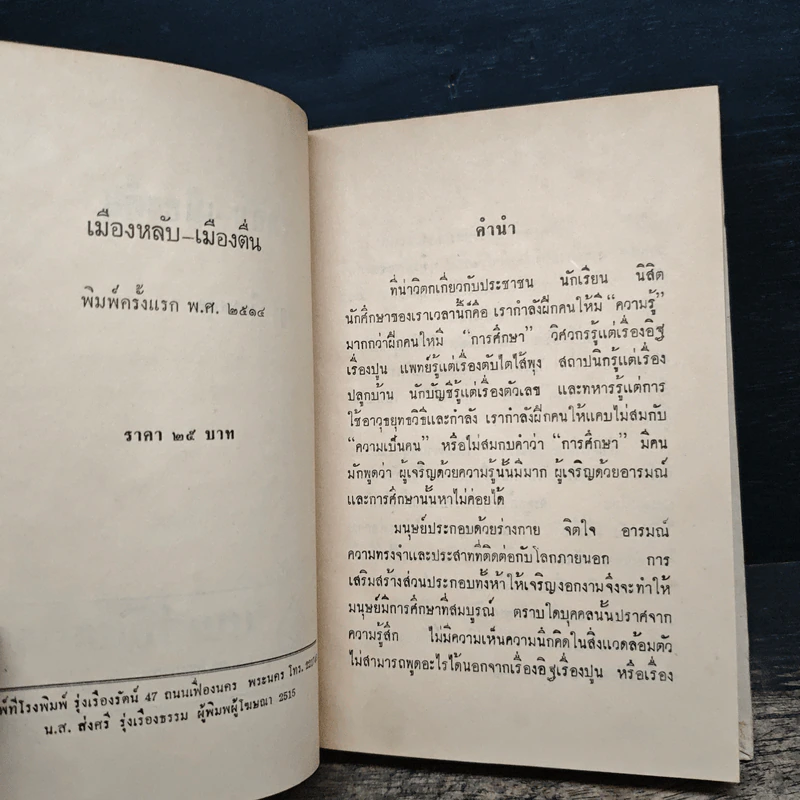 เมืองหลับ-เมืองตื่น
พิมพ์ครั้งแรก พ.ศ. ๒๕๑๔
ราคา ๒๕ บาท
พ์ที่โรงพิมพ์ รุ่งเรืองรัตน์ 47 ถนนเฟื่องนคร พระนคร โทร.
น.ส. ส่งศรี รุ่งเรืองธรรม ผู้พิมพ์ผู้โฆษณา 2515
คำนำ
ที่น่าวิตกเกี่ยวกับประชาชน นักเรียน นิสิต
นักศึกษาของเราเวลานี้ก็คือ เรากำลังฝึกคนให้มี “ความรู้”
มากกว่าฝึกคนให้มี “การศึกษา” วิศวกรรู้แต่เรื่องอิฐ
เรื่องปูน แพทย์รู้แต่เรื่องตับไตไส้พุง สถาปนิกรู้แต่เรื่อง
ปลูกบ้าน นักบัญชีรู้แต่เรื่องตัวเลข และทหารรู้แต่การ
ใช้อาวุธยุทธวิธีและกำลัง เรากำลังฝึกคนให้แคบไม่สมกับ
“ความเป็นคน” หรือไม่สมกบคำว่า “การศึกษา” มีคน
มักพูดว่า ผู้เจริญด้วยความรู้นั้นมีมาก ผู้เจริญด้วยอารมณ์
และการศึกษานั้นหาไม่ค่อยได้
มนุษย์ประกอบด้วยร่างกาย จิตใจ อารมณ์
ความทรงจำและประสาทที่ติดต่อกับโลกภายนอก การ
เสริมสร้างส่วนประกอบทั้งห้าให้เจริญงอกงามจึงจะทำให้
มนุษย์มีการศึกษาที่สมบูรณ์ ตราบใดบุคคลนั้นปราศจาก
ความรู้สึก ไม่มีความเห็นความนึกคิดในสิ่งแวดล้อมตัว
ไม่สามารถพูดอะไรได้นอกจากเรื่องอิฐเรื่องปูน หรือเรื่อง